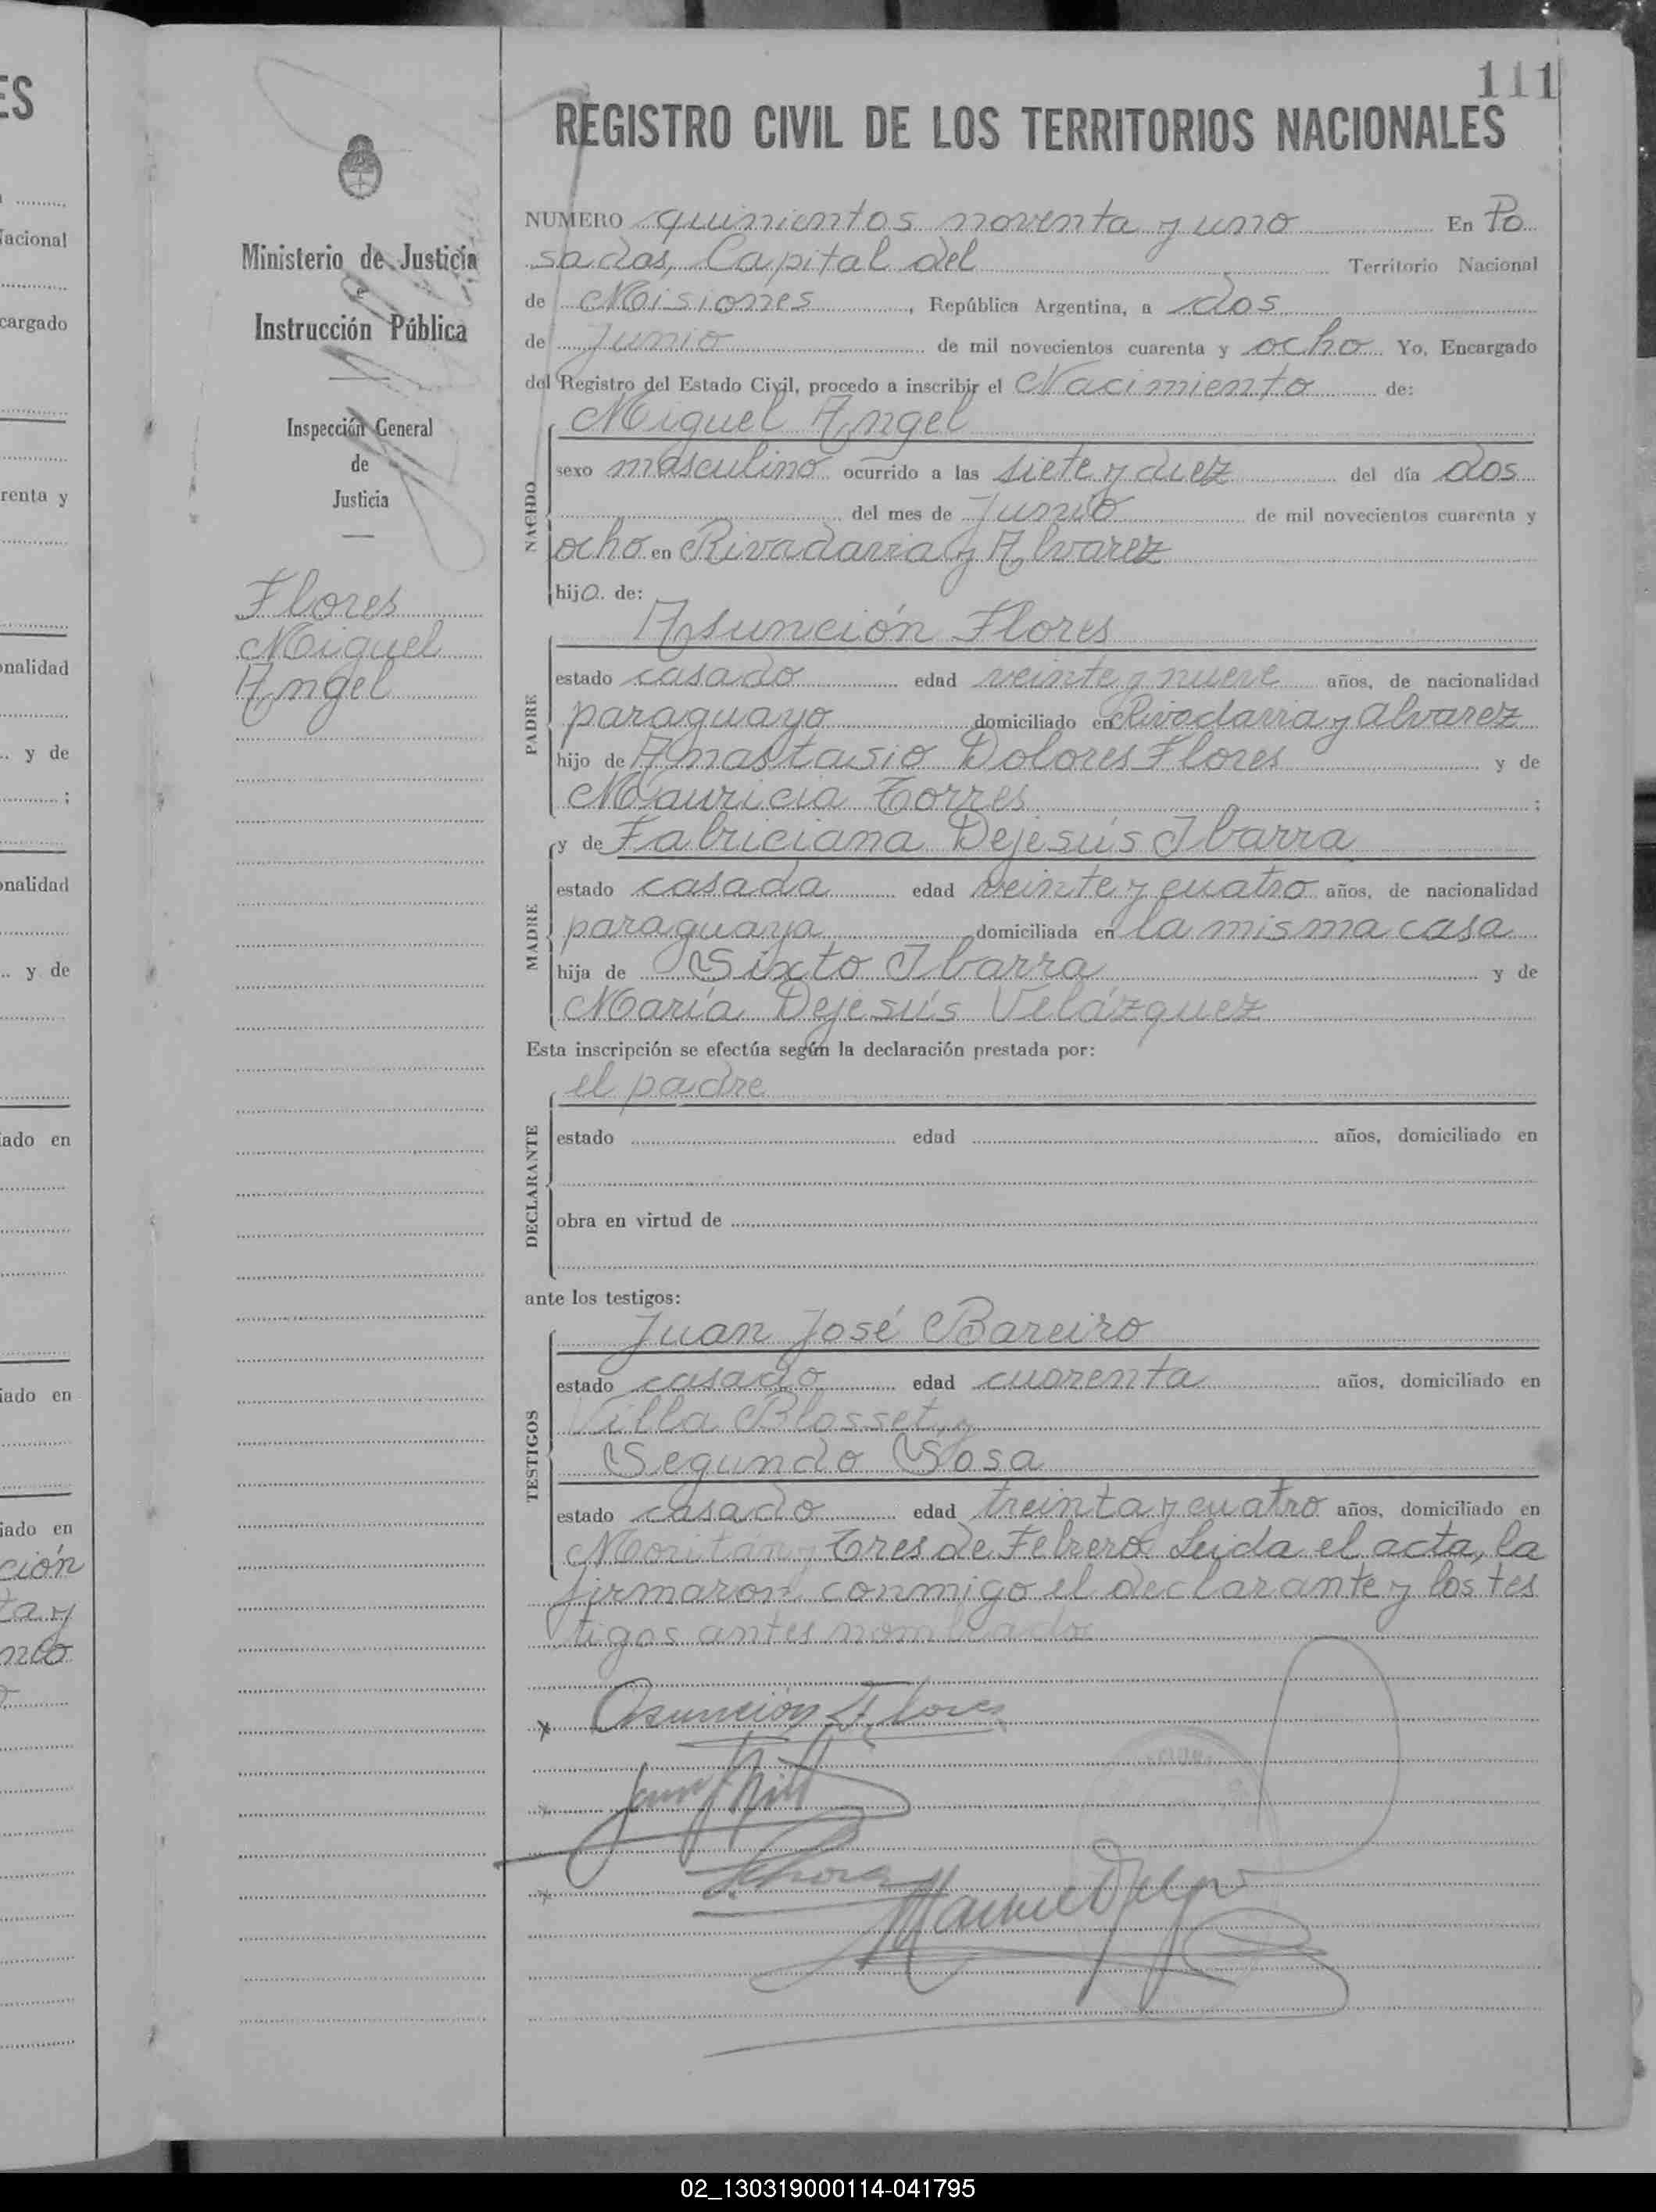 111
REGISTRO CIVIL DE LOS TERRITORIOS NACIONALES
Ministerio de Justicia
e
Instrucción Pública
Inspección General
de
Justicia
Flores
Miguel
Angel
NUMERO quinientos noventa y uno En Po
sadas, Capital del Territorio Nacional
de Misiones, República Argentina, a dos
de Junio de mil novecientos cuarenta y ocho Yo, Encargado
del Registro del Estado Civil, procedo a inscribir el Nacimiento de:
NACIDO
Miguel Angel
sexo masculino ocurrido a las siete y diez del día dos
del mes de Junio de mil novecientos cuarenta y
ocho en Rivadavia y Alvarez
hijo de:
PADRE
Asunción Flores
estado casado edad veinte y nueve años, de nacionalidad
paraguayo domiciliado en Rivadavia y Alvarez
hijo de Anastasio Dolores Flores y de
Mauricia Torres ;
MADRE
y de Fabriciana Dejesús Ibarra
estado casada edad veinte y cuatro años, de nacionalidad
paraguaya domiciliada en la misma casa
hija de Sixto Ibarra y de
María Dejesús Velázquez
Esta inscripción se efectúa según la declaración prestada por:
DECLARANTE
el padre
estado edad años, domiciliado en
obra en virtud de
ante los testigos:
TESTIGOS
Juan José Bareiro
estado casado edad cuarenta años, domiciliado en
Villa Blosset y
Segundo Sosa
estado casado edad treinta y cuatro años, domiciliado en
Moritán y Tres de Febrero. Leida el acta, la
firmaron conmigo el declarante y los tes
tigos antes nombrados
Asunción Flores
02_130319000114-041795